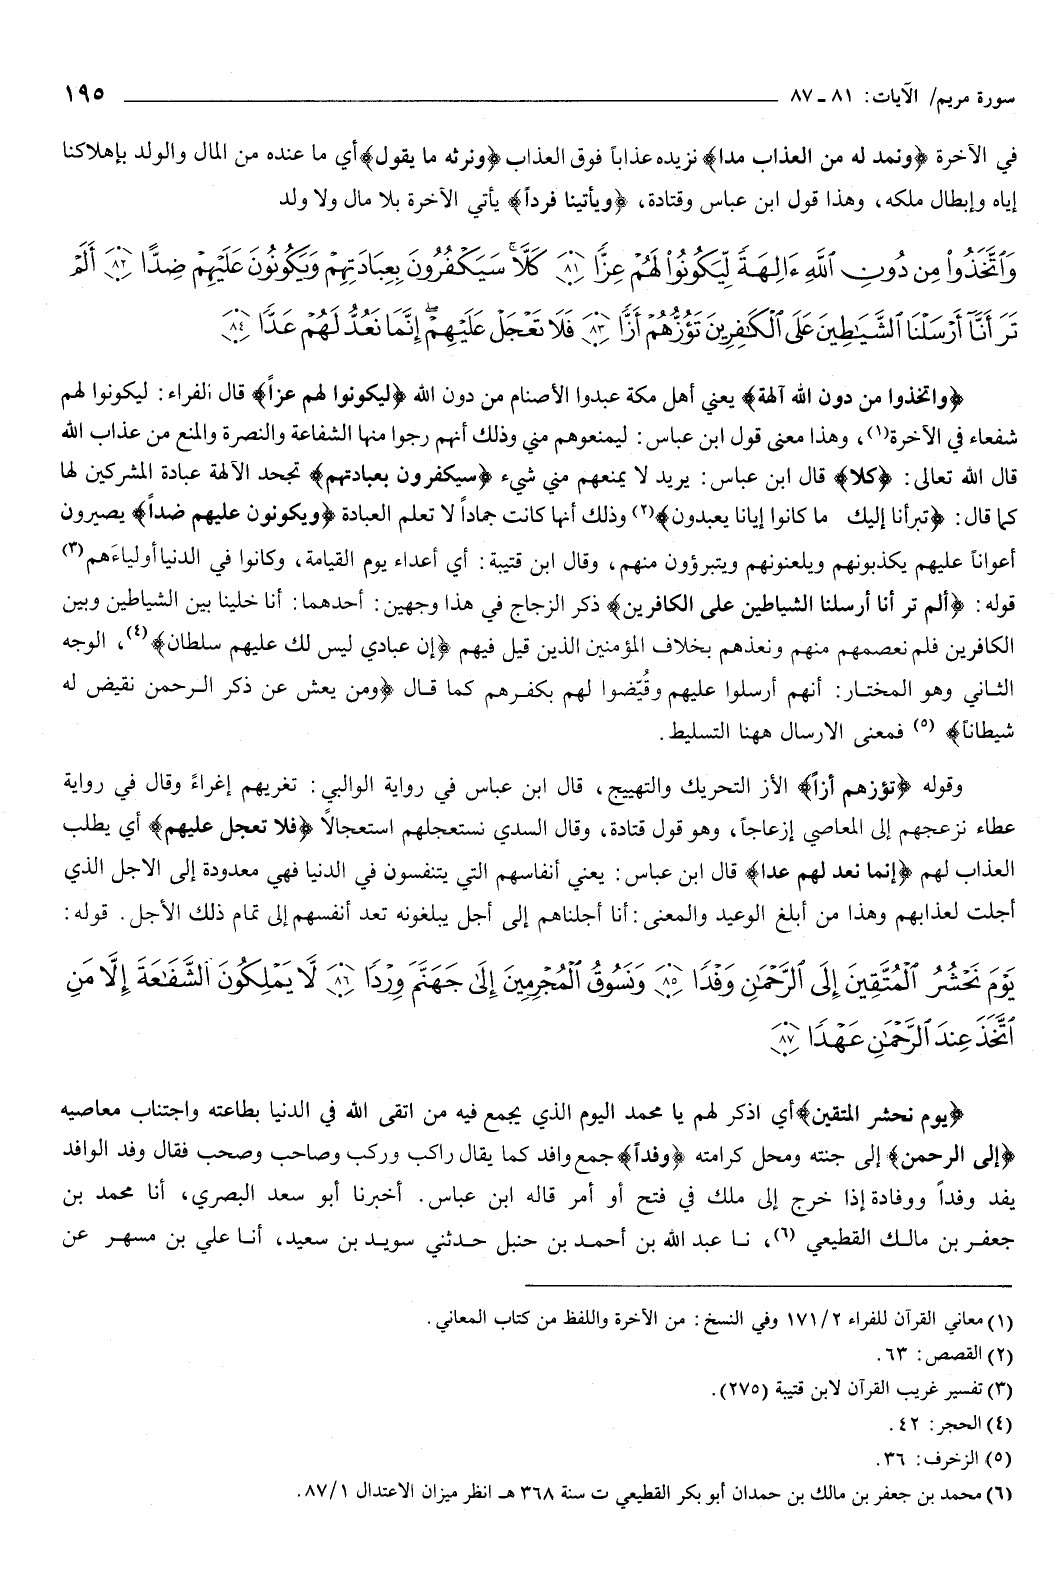 سورة مريم/ الآيات: ٨١ ـ ٨٧ ١٩٥
في الآخرة ﴿ونمد له من العذاب مدا﴾ نزيده عذاباً فوق العذاب ﴿ونرثه ما يقول﴾ أي ما عنده من المال والولد بإهلاكنا
إياه وإبطال ملكه، وهذا قول ابن عباس وقتادة، ﴿ويأتينا فرداً﴾ يأتي الآخرة بلا مال ولا ولد
وَٱتَّخَذُواْ مِن دُونِ ٱللَّهِ ءَالِهَةً لِّيَكُونُواْ لَهُمْ عِزًّا ﴿٨١﴾ كَلَّا ۚ سَيَكْفُرُونَ بِعِبَادَتِهِمْ وَيَكُونُونَ عَلَيْهِمْ ضِدًّا ﴿٨٢﴾ أَلَمْ
تَرَ أَنَّآ أَرْسَلْنَا ٱلشَّيَـٰطِينَ عَلَى ٱلْكَـٰفِرِينَ تَؤُزُّهُمْ أَزًّا ﴿٨٣﴾ فَلَا تَعْجَلْ عَلَيْهِمْ ۖ إِنَّمَا نَعُدُّ لَهُمْ عَدًّا ﴿٨٤﴾
﴿واتخذوا من دون الله آلهة﴾ يعني أهل مكة عبدوا الأصنام من دون الله ﴿ليكونوا لهم عزاً﴾ قال الفراء: ليكونوا لهم
شفعاء في الآخرة(١)، وهذا معنى قول ابن عباس: ليمنعوهم مني وذلك أنهم رجوا منها الشفاعة والنصرة والمنع من عذاب الله
قال الله تعالى: ﴿كلا﴾ قال ابن عباس: يريد لا يمنعهم مني شيء ﴿سيكفرون بعبادتهم﴾ تجحد الآلهة عبادة المشركين لها
كما قال: ﴿تبرأنا إليك ما كانوا إيانا يعبدون﴾(٢) وذلك أنها كانت جماداً لا تعلم العبادة ﴿ويكونون عليهم ضداً﴾ يصيرون
أعواناً عليهم يكذبونهم ويلعنونهم ويتبرؤون منهم، وقال ابن قتيبة: أي أعداء يوم القيامة، وكانوا في الدنيا أولياءَهم(٣)
قوله: ﴿ألم تر أنا أرسلنا الشياطين على الكافرين﴾ ذكر الزجاج في هذا وجهين: أحدهما: أنا خلينا بين الشياطين وبين
الكافرين فلم نعصمهم منهم ونعذهم بخلاف المؤمنين الذين قيل فيهم ﴿إن عبادي ليس لك عليهم سلطان﴾(٤)، الوجه
الثاني وهو المختار: أنهم أرسلوا عليهم وقُيّضوا لهم بكفرهم كما قال ﴿ومن يعش عن ذكر الرحمن نقيض له
شيطاناً﴾ (٥) فمعنى الارسال ههنا التسليط.
وقوله ﴿تؤزهم أزاً﴾ الأز التحريك والتهييج، قال ابن عباس في رواية الوالبي: تغريهم إغراءً وقال في رواية
عطاء نزعجهم إلى المعاصي إزعاجاً، وهو قول قتادة، وقال السدي نستعجلهم استعجالاً ﴿فلا تعجل عليهم﴾ أي يطلب
العذاب لهم ﴿إنما نعد لهم عدا﴾ قال ابن عباس: يعني أنفاسهم التي يتنفسون في الدنيا فهي معدودة إلى الاجل الذي
أجلت لعذابهم وهذا من أبلغ الوعيد والمعنى: أنا أجلناهم إلى أجل يبلغونه تعد أنفسهم إلى تمام ذلك الأجل. قوله:
يَوْمَ نَحْشُرُ ٱلْمُتَّقِينَ إِلَى ٱلرَّحْمَـٰنِ وَفْدًا ﴿٨٥﴾ وَنَسُوقُ ٱلْمُجْرِمِينَ إِلَىٰ جَهَنَّمَ وِرْدًا ﴿٨٦﴾ لَّا يَمْلِكُونَ ٱلشَّفَـٰعَةَ إِلَّا مَنِ
ٱتَّخَذَ عِندَ ٱلرَّحْمَـٰنِ عَهْدًا ﴿٨٧﴾
﴿يوم نحشر المتقين﴾ أي اذكر لهم يا محمد اليوم الذي يجمع فيه من اتقى الله في الدنيا بطاعته واجتناب معاصيه
﴿إلى الرحمن﴾ إلى جنته ومحل كرامته ﴿وفداً﴾ جمع وافد كما يقال راكب وركب وصاحب وصحب فقال وفد الوافد
يفد وفداً ووفادة إذا خرج إلى ملك في فتح أو أمر قاله ابن عباس. أخبرنا أبو سعد البصري، أنا محمد بن
جعفر بن مالك القطيعي (٦)، نا عبد الله بن أحمد بن حنبل حدثني سويد بن سعيد، أنا علي بن مسهر عن
(١) معاني القرآن للفراء ١٧١/٢ وفي النسخ: من الآخرة واللفظ من كتاب المعاني.
(٢) القصص: ٦٣.
(٣) تفسير غريب القرآن لابن قتيبة (٢٧٥).
(٤) الحجر: ٤٢.
(٥) الزخرف: ٣٦.
(٦) محمد بن جعفر بن مالك بن حمدان أبو بكر القطيعي ت سنة ٣٦٨ هـ انظر ميزان الاعتدال ٨٧/١.